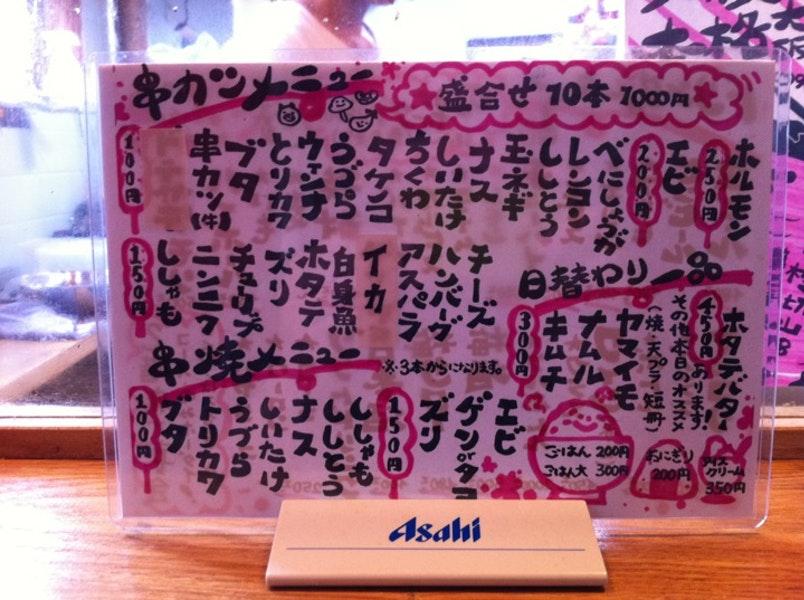 串カツメニュー
★盛合せ 10本 1000円★
100円
串カツ(牛)
ブタ
とりカワ
ウインナ
うづら
タケコ
ちくわ
しいたけ
ナス
玉ネギ
ししとう
レンコン
べにしょうが
200円
エビ
250円
ホルモン
150円
ししゃも
ニンニク
チューリップ
ズリ
ホタテ
白身魚
イカ
アスパラ
ハンバーグ
チーズ
日替わり一品
300円
キムチ
ナムル
ヤマイモ
450円
ホタテバター
その他本日のオススメあります!
(焼・天プラ・短冊)
串焼メニュー
※3本からになります。
100円
ブタ
トリカワ
うづら
しいたけ
ナス
ししとう
ししゃも
150円
ズリ
ゲンorタコ
エビ
ごはん 200円
ごはん大 300円
おにぎり
200円
アイス
クリーム
350円
Asahi